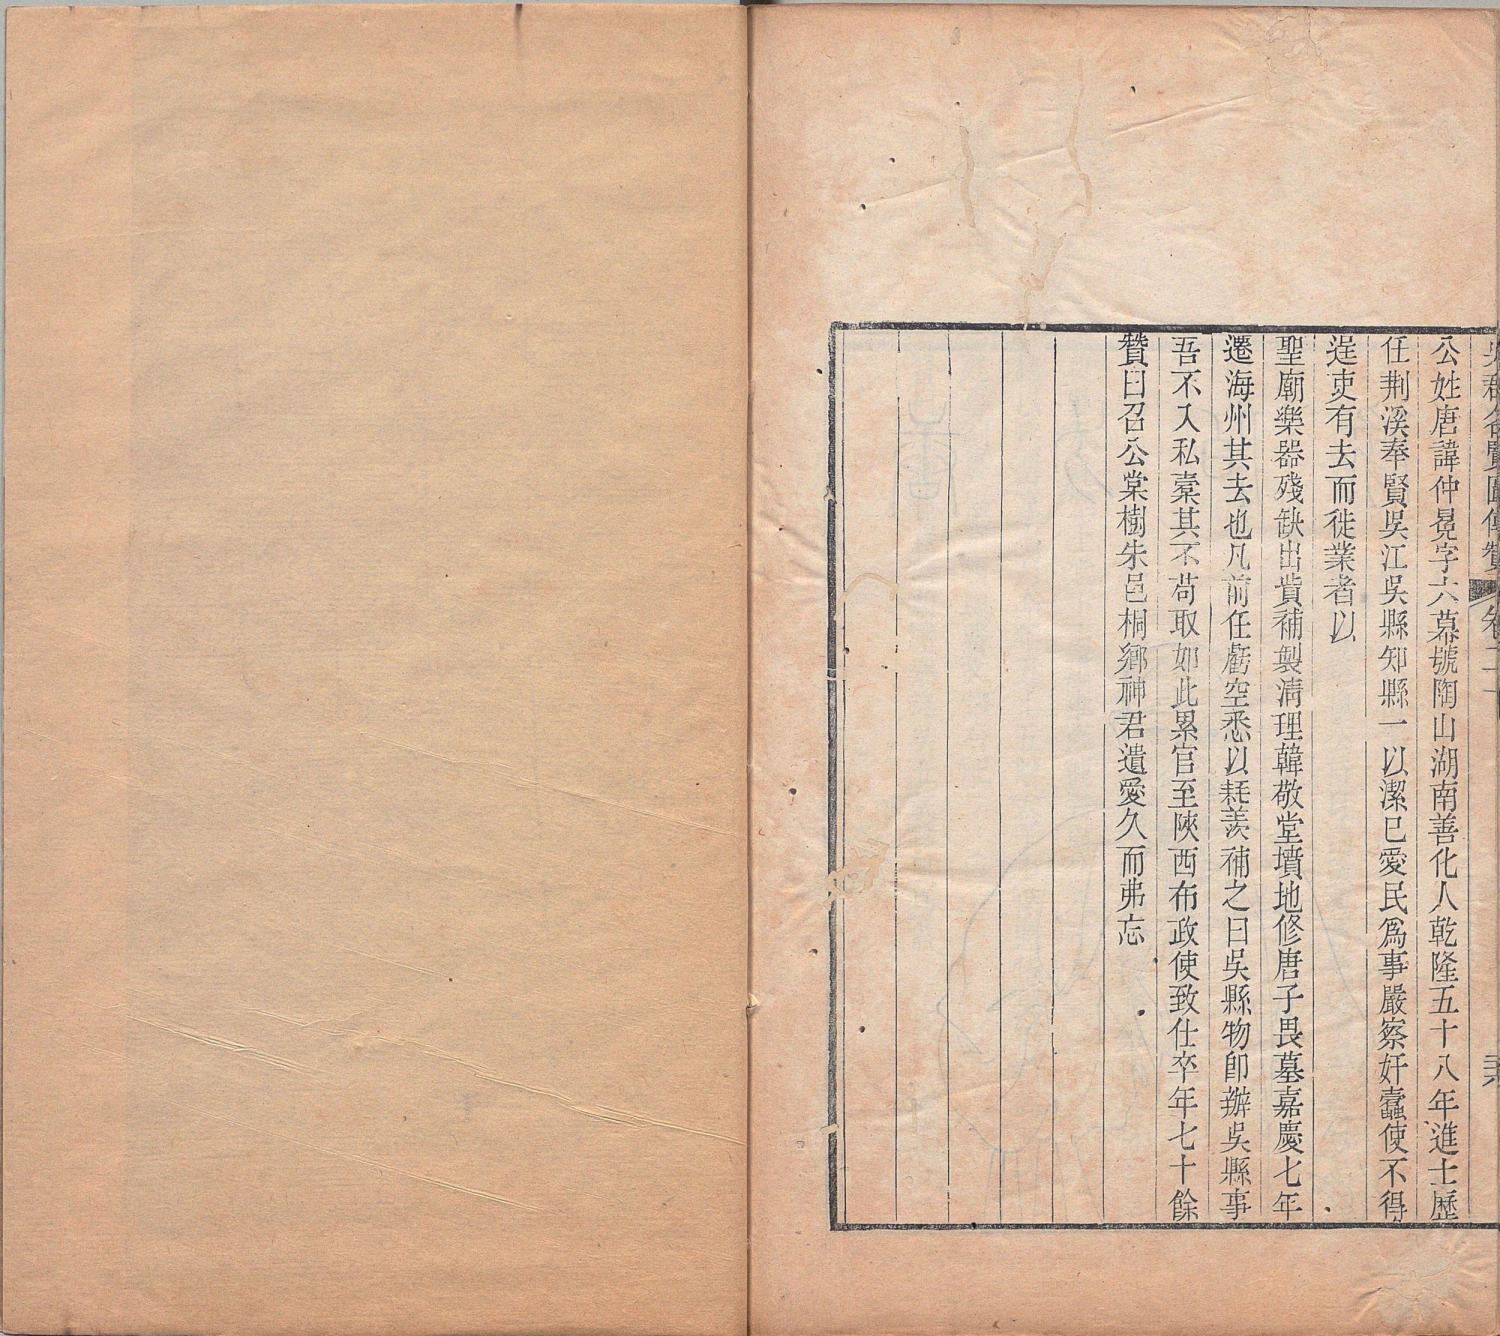 吳郡名賢圖傳贊 卷二十
公姓唐諱仲冕字六幕號陶山湖南善化人乾隆五十八年進士歷
任荆溪奉賢吳江吳縣知縣一以潔已愛民爲事嚴察奸蠹使不得
逞吏有去而徙業者以
聖廟樂器殘缺出貲補製清理韓敬堂墳地修唐子畏墓嘉慶七年
遷海州其去也凡前任虧空悉以耗羨補之曰吳縣物卽辦吳縣事
吾不入私橐其不苟取如此累官至陝西布政使致仕卒年七十餘
贊曰召公棠樹朱邑桐鄉神君遺愛久而弗忘